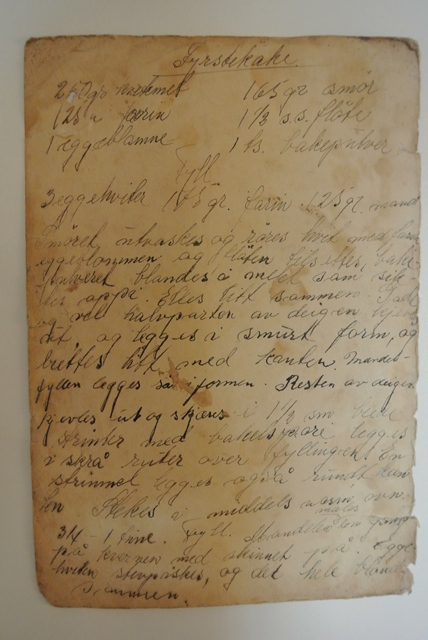 Fyrstekake
250 gr hvetemel 165 gr smør
125 " farin 1 1/2 s.s. fløte
1 eggeblomme 1 ts. bakepulver
Fyll
3 eggehviter 165 gr. farin 125 gr. mand
Smøret utvaskes og røres hvit med farin
eggeblommen, og fløten tilsettes, bake-
pulveret blandes i melet som sik-
tes oppi. Eltes lett sammen.
og vel halvparten av deigen kjevles
ut, og legges i smurt form, og
brettes litt med kanten. Mandel-
fyllen legges så i formen. Resten av deigen
kjevles ut og skjæres i 1 1/2 sm brede
strimler med bakelsspore legges
i skrå ruter over fyllingen. En
strimmel legges også rundt kan
ten Stekes i middels varm ovn
3/4 - 1 time. Fyll. Mandelen males
på kvernen med skinnet på. Egge-
hviten stivpiskes, og det hele bland
sammen.